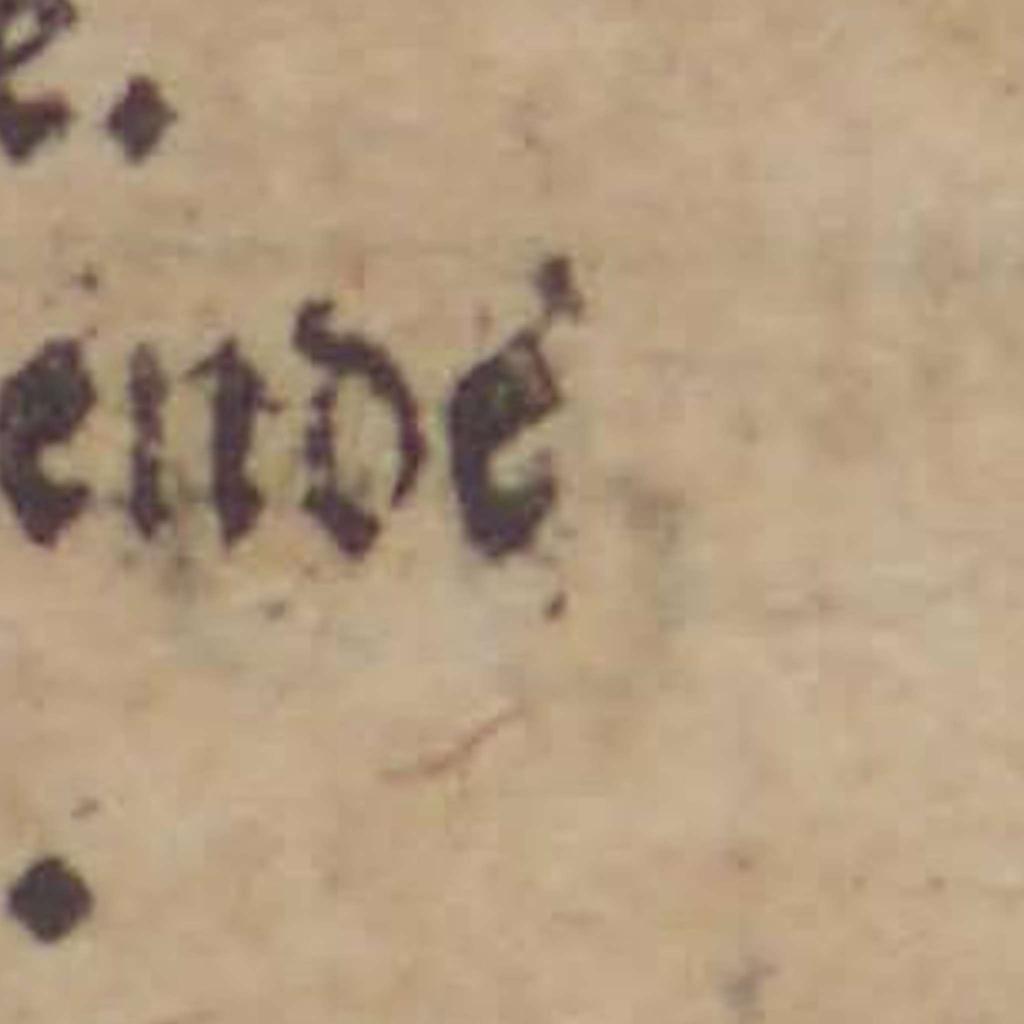 e.
ende
.